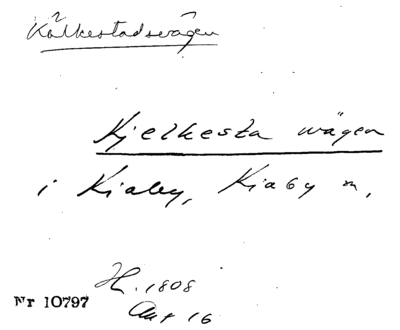 Kälkestadsvägen
Kjelkesta wägen
i Kiaby, Kiaby n,
H. 1808
Nr 10797
Akt 16